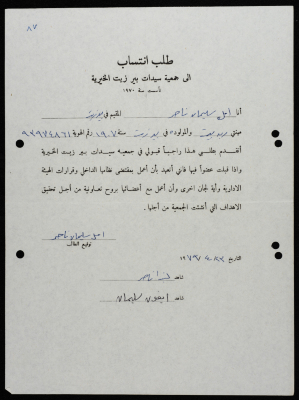 ٨٧
طلب انتساب
الى جمعية سيدات بير زيت الخيرية
تأسست سنة ١٩٧٠
أنا امل سليمان ناصر المقيم في بيرزيت
مهنتي والمولودة في بيرزيت سنة ١٩٠٧ رقم الهوية ٩٣٩٧٤٨٦١
أتقدم بطلبي هذا راجياً قبولي في جمعية سيدات بير زيت الخيرية
واذا قبلت عضواً فيها فاني أتعهد بأن أعمل بمقتضى نظامها الداخلي وقرارات الهيئة
الادارية وأية لجان اخرى وأن أعمل مع أعضائها بروح تعاونية من أجل تحقيق
الاهداف التي أنشئت الجمعية من أجلها.
امل سليمان ناصر
توقيع الطالب
التاريخ ١٩٧٩
شاهد
شاهد سليمان